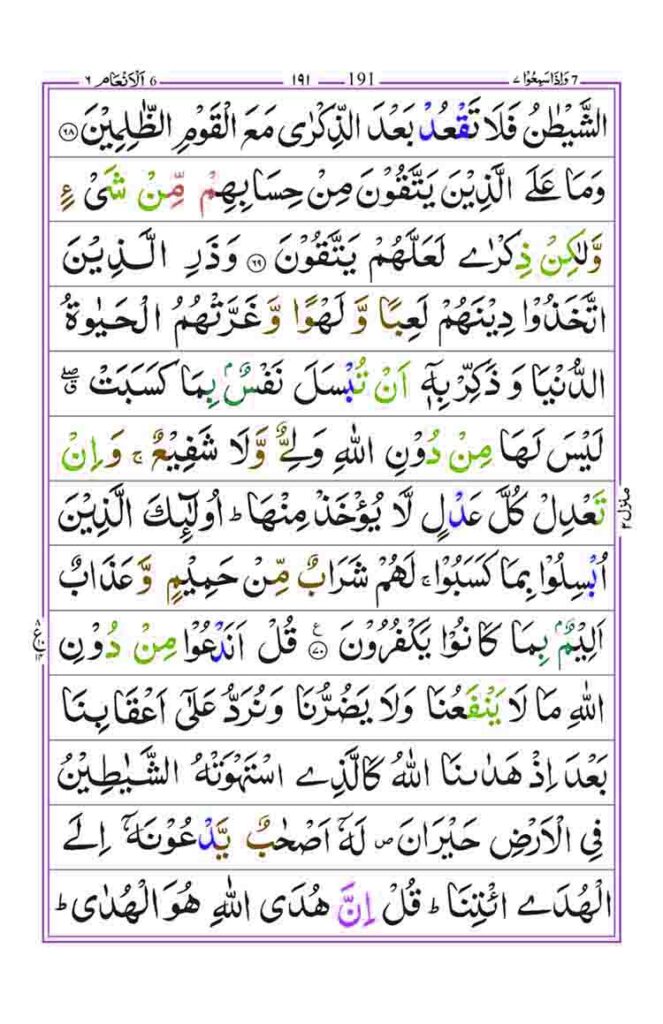 7 وَاِذَا سَمِعُوْا ٧ 191 ١٩١ 6 اَلْاَنْعَام ٦
الشَّيْطٰنُ فَلَا تَقْعُدْ بَعْدَ الذِّكْرٰى مَعَ الْقَوْمِ الظّٰلِمِيْنَ ۝٦٨
وَمَا عَلَى الَّذِيْنَ يَتَّقُوْنَ مِنْ حِسَابِهِمْ مِّنْ شَىْءٍ
وَّلٰكِنْ ذِكْرٰى لَعَلَّهُمْ يَتَّقُوْنَ ۝٦٩ وَذَرِ الَّذِيْنَ
اتَّخَذُوْا دِيْنَهُمْ لَعِبًا وَّ لَهْوًا وَّ غَرَّتْهُمُ الْحَيٰوةُ
الدُّنْيَا وَ ذَكِّرْ بِهٖٓ اَنْ تُبْسَلَ نَفْسٌۢ بِمَا كَسَبَتْ ۖۗ
لَيْسَ لَهَا مِنْ دُوْنِ اللّٰهِ وَلِىٌّ وَّلَا شَفِيْعٌ ۚ وَاِنْ
تَعْدِلْ كُلَّ عَدْلٍ لَّا يُؤْخَذْ مِنْهَا ؕ اُولٰٓئِكَ الَّذِيْنَ
اُبْسِلُوْا بِمَا كَسَبُوْا ۚ لَهُمْ شَرَابٌ مِّنْ حَمِيْمٍ وَّعَذَابٌ
اَلِيْمٌۢ بِمَا كَانُوْا يَكْفُرُوْنَ ۝٧٠ ع قُلْ اَنَدْعُوْا مِنْ دُوْنِ
اللّٰهِ مَا لَا يَنْفَعُنَا وَلَا يَضُرُّنَا وَنُرَدُّ عَلٰٓى اَعْقَابِنَا
بَعْدَ اِذْ هَدٰىنَا اللّٰهُ كَالَّذِى اسْتَهْوَتْهُ الشَّيٰطِيْنُ
فِى الْاَرْضِ حَيْرَانَ ۪ لَهٗٓ اَصْحٰبٌ يَّدْعُوْنَهٗٓ اِلَى
الْهُدَى ائْتِنَا ؕ قُلْ اِنَّ هُدَى اللّٰهِ هُوَ الْهُدٰى ؕ
منزل ٢